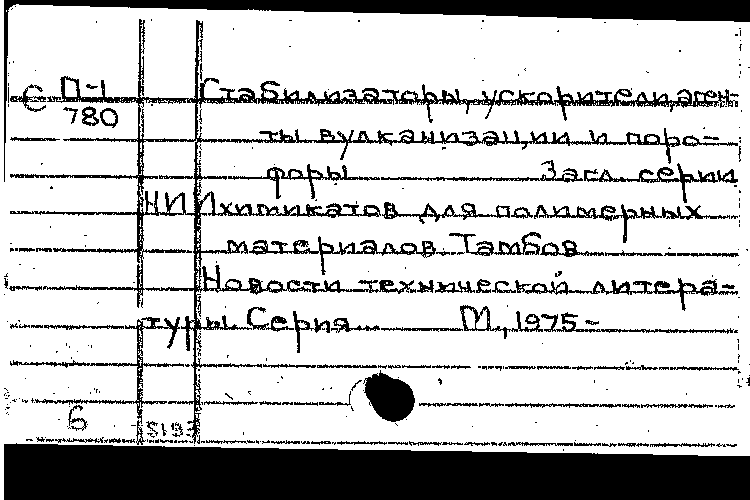 С П-1 Стабилизаторы, ускорители, аген-
780
ты вулканизации и поро-
форы Загл. серии
НИИхимикатов для полимерных
материалов. Тамбов
Новости технической литера-
туры. Серия... М., 1975-
6